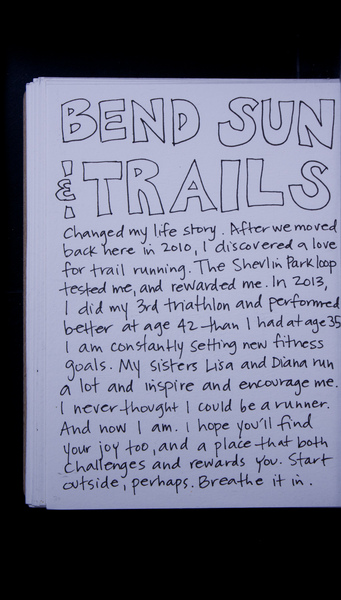 BEND SUN
& TRAILS
Changed my life story. After we moved
back here in 2010, I discovered a love
for trail running. The Shevlin Park loop
tested me, and rewarded me. In 2013,
I did my 3rd triathlon and performed
better at age 42 than I had at age 35
I am constantly setting new fitness
goals. My sisters Lisa and Diana run
a lot and inspire and encourage me.
I never thought I could be a runner.
And now I am. I hope you'll find
your joy too, and a place that both
challenges and rewards you. Start
outside, perhaps. Breathe it in.